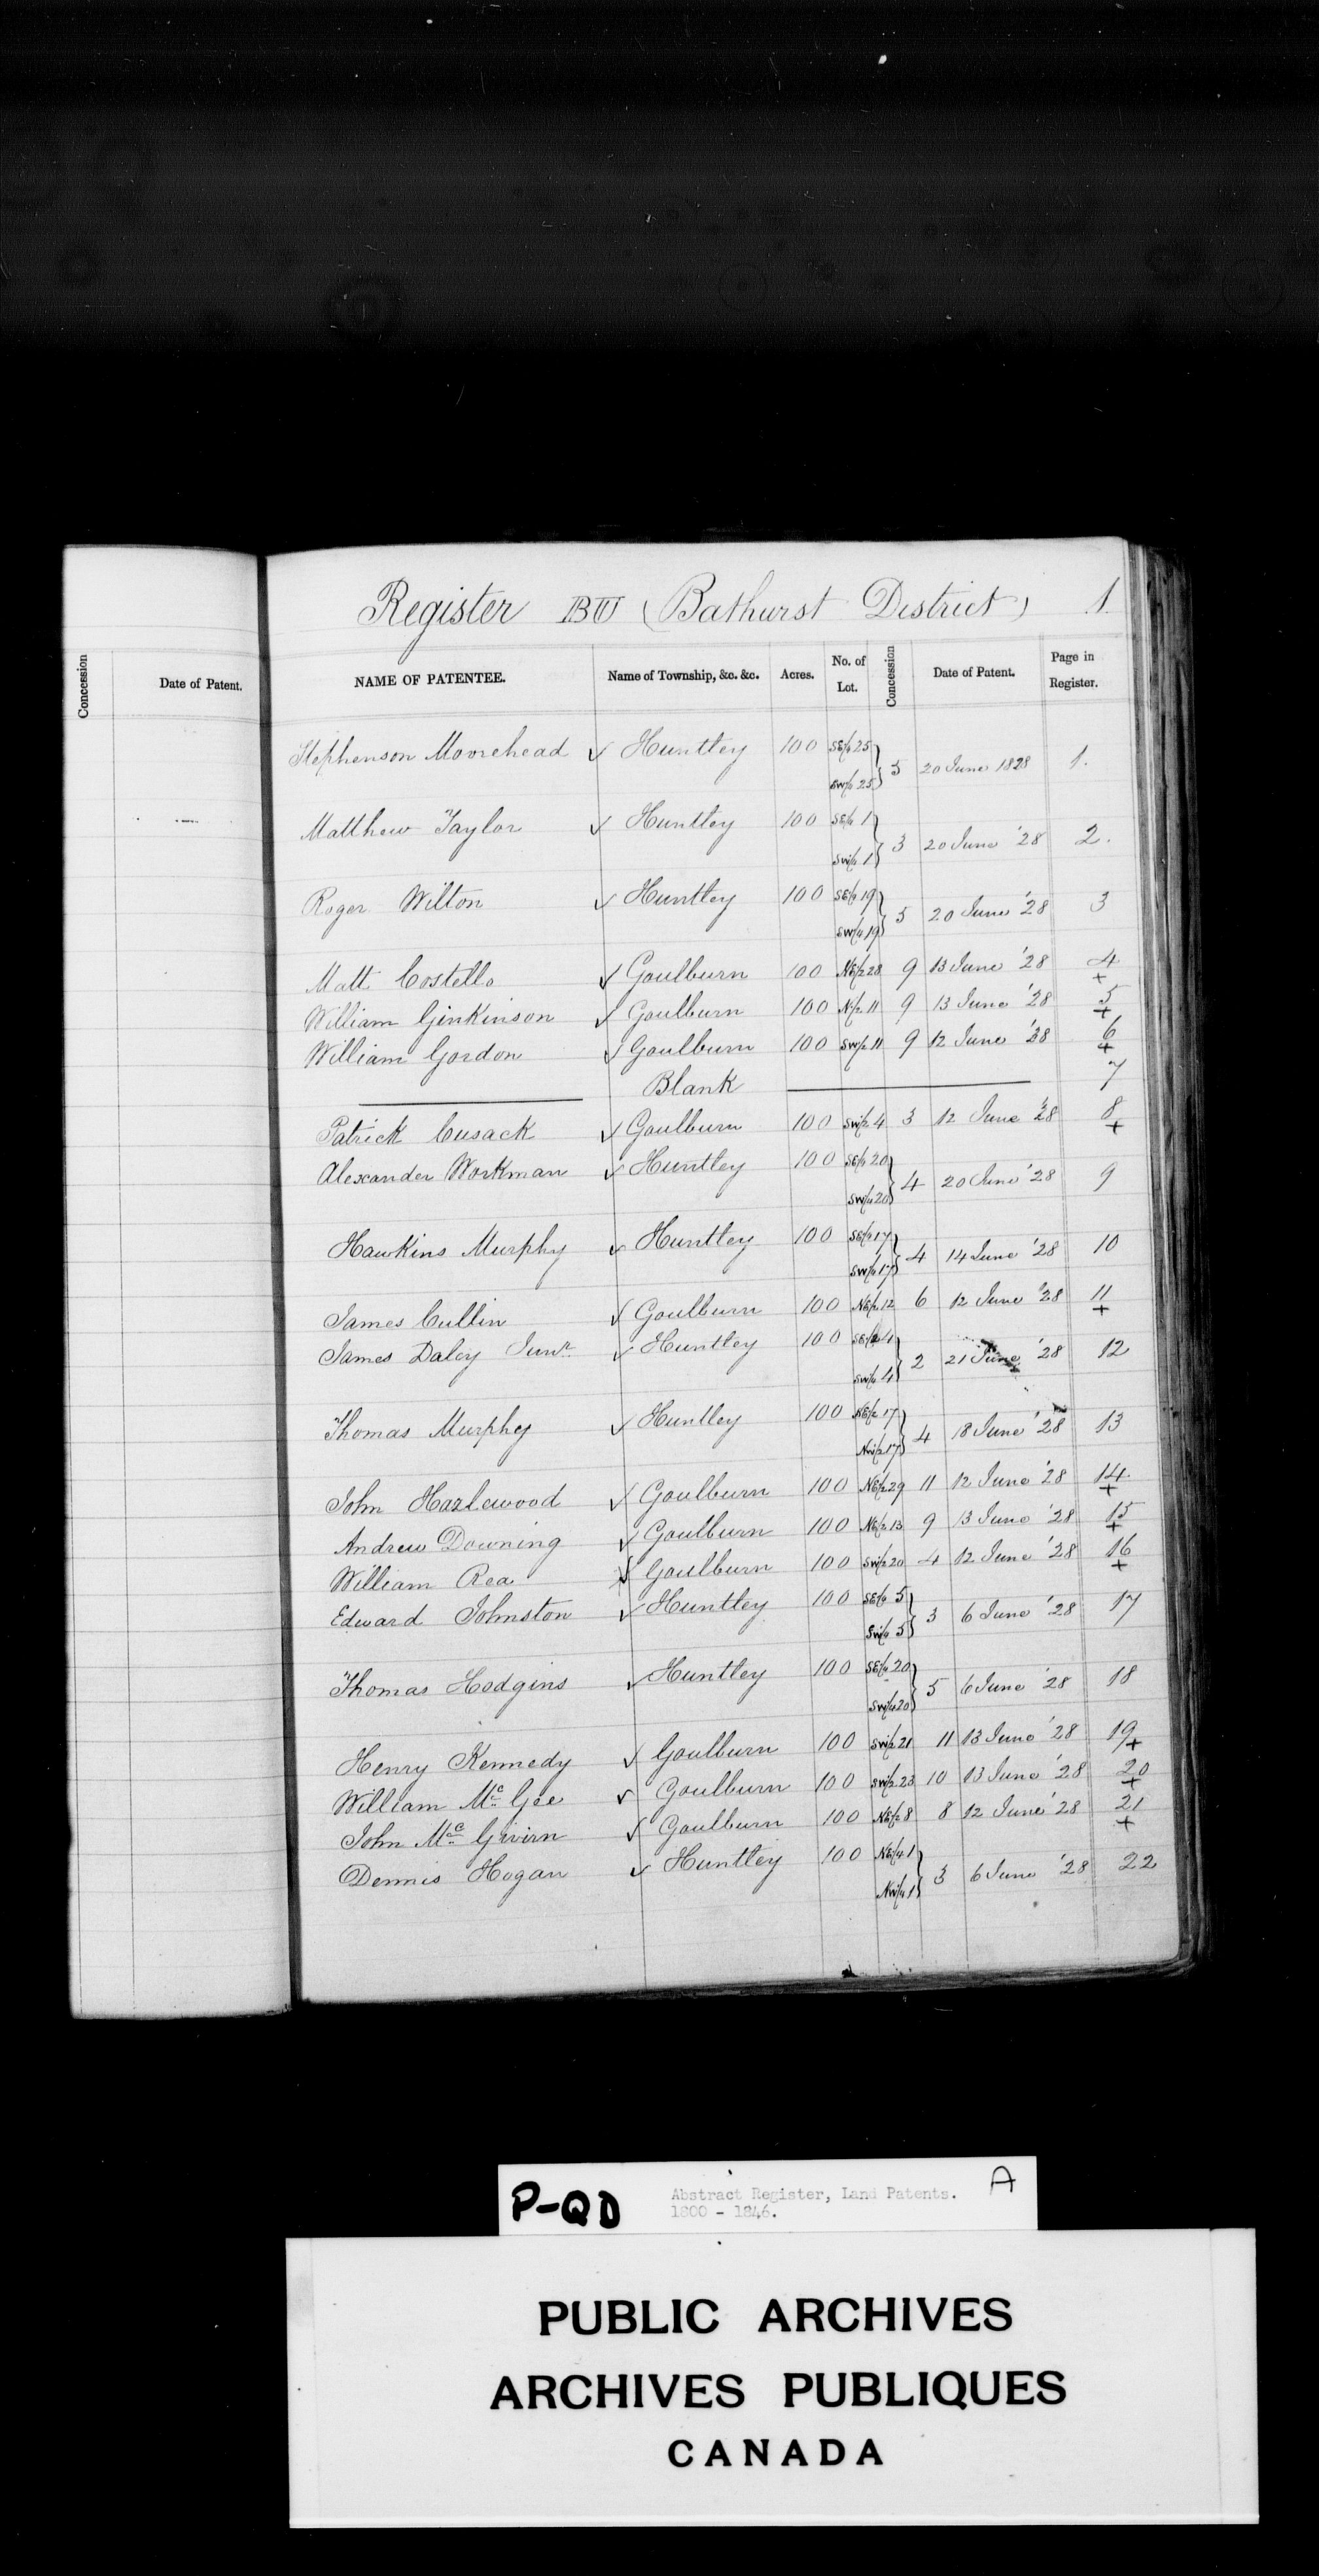 Concession
Date of Patent.
Register BW (Bathurst District) 1.
NAME OF PATENTEE. Name of Township, &c. &c. Acres. No. of Lot. Concession Date of Patent. Page in Register.
Stephenson Moorehead ✓ Huntley 100 SE/4 25
SW/4 25 } 5 20 June 1828 1.
Matthew Taylor ✓ Huntley 100 SE/4 1
SW/4 1 } 3 20 June '28 2.
Roger Wilton ✓ Huntley 100 SE/4 19
SW/4 19 } 5 20 June '28 3
Matt Costello ✓ Goulburn 100 NE/2 28 9 13 June '28 4 +
William Ginkinson ✓ Goulburn 100 N/2 11 9 13 June '28 5 +
William Gordon ✓ Goulburn 100 SW/2 11 9 12 June '28 6 +
Blank 7
Patrick Cusack ✓ Goulburn 100 SW/2 4 3 12 June '28 8 +
Alexander Workman ✓ Huntley 100 SE/4 20
SW/4 20 } 4 20 June '28 9
Hawkins Murphy ✓ Huntley 100 SE/4 17
SW/4 17 } 4 14 June '28 10
James Cullin ✓ Goulburn 100 NE/2 12 6 12 June '28 11 +
James Daley Junr ✓ Huntley 100 SE/4 4
SW/4 4 } 2 21 June '28 12
Thomas Murphy ✓ Huntley 100 NE/2 17
NW/2 17 } 4 18 June '28 13
John Hazlewood ✓ Goulburn 100 NE/2 29 11 12 June '28 14 +
Andrew Downing ✓ Goulburn 100 NE/2 13 9 13 June '28 15 +
William Rea ✓ Goulburn 100 SW/2 20 4 12 June '28 16 +
Edward Johnston ✓ Huntley 100 SE/4 5
SW/4 5 } 3 6 June '28 17
Thomas Hodgins ✓ Huntley 100 SE/4 20
SW/4 20 } 5 6 June '28 18
Henry Kennedy ✓ Goulburn 100 SW/2 21 11 13 June '28 19 +
William Mc Gee ✓ Goulburn 100 SW/2 23 10 13 June '28 20 +
John Mc Givirn ✓ Goulburn 100 NE/2 8 8 12 June '28 21 +
Dennis Hogan ✓ Huntley 100 NE/4 1
NW/4 1 } 3 6 June '28 22
P-QD Abstract Register, Land Patents. A
1800 - 1846.
PUBLIC ARCHIVES
ARCHIVES PUBLIQUES
CANADA